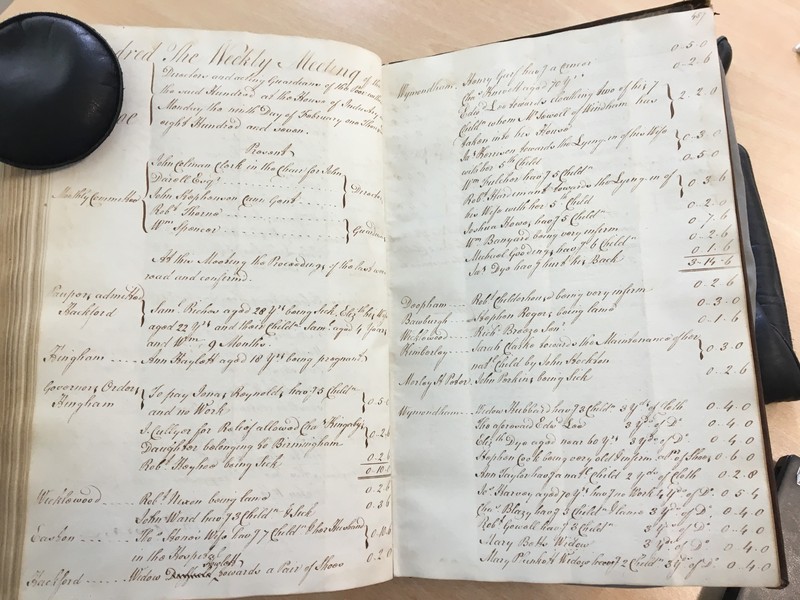 dred The Weekly Meeting of the
Directors and acting Guardians of the Poor within
the said Hundred at the House of Industry
Monday the ninth Day of February one Thous
eight Hundred and seven.
Present
John Colman Clark in the Chair for John
Darell Esqr
Monthly Committee John Stephenson Cann Gent. Director
Robt Thorne
Wm Spencer Guardian
At this Meeting the Proceedings of the last were
read and confirmed.
Paupers admitted
Hackford Saml aged 28 Yrs being Sick, Elizth his Wife
aged 22 Yrs and their Childn Saml aged 4 Years
and Wm 9 Months.
Hingham Ann Haylott aged 18 Yrs being pregnant
Governors Orders
Hingham To pay Jonas Reynolds havg 5 Childn
and no Work 0 5 0
J. Cullyer for Relief allowed Chas Kingsby
Daughter belonging to Birmingham 0 2 6
Robt being Sick 0 2 6
0 10 0
Wicklewood Robt Nixon being lame 0 2 6
John Ward havg 3 Childn & Sick 0 3 6
Easton Thos Honor Wife havg 7 Childn & her Husband
in the Hospital 0 10 6
Hackford Widow Haylett towards a Pair of Shoes 0 2 0
Wymondham Henry Garf havg a Cancer 0 5 0
Chas Kinnell aged 70 Yrs 0 2 6
Edwd Loe towards cloathing two of his 7
Childn whom Mr Sewell of Windham has
taken into his House 2 2 0
Jas Harrison towards the Lying in of his Wife
with her 5th Child 0 3 0
Wm Fulcher havg 5 Childn 0 5 0
Robt Hardiment towards the Lying in of
his Wife with her 5th Child 0 3 6
Joshua Howes havg 5 Childn 0 2 0
Wm Banyard being very infirm 0 7 6
Michael Gooding havg 6 Childn 0 2 6
Jas Dye havg hurt his Back 0 1 6
5 14 6
Deopham Robt Childerhouse being very infirm 0 2 6
Bawburgh Stephen Rogers being lame 0 3 0
Wicklewood Richd Breeze Senr 0 1 6
Kimberley Sarah towards the Maintenance of her
natl Child by John Stockton 0 3 0
Morley St Peter John Perkins being Sick 0 2 6
Wymondham Widow Hubbard havg 3 Childn 3 Yds of Cloth 0 4 0
The aforesaid Edwd Loe 3 Yds of Do 0 4 0
Elizth Dye aged near 60 Yrs 3 Yds of Do 0 4 0
Stephen Cook being very old & infirm a Pr of Shoes 0 6 0
Ann Taylor havg a natl Child 2 Yds of Cloth 0 2 8
Jas Harvey aged 70 Yrs havg no Work 4 Yds of Do 0 5 4
Chas Blazey havg 3 Childn & lame 3 Yds of Do 0 4 0
Robt Gowell havg 3 Childn 3 Yds of Do 0 4 0
Mary Betts Widow 3 Yds of Do 0 4 0
Mary Plunkett Widow havg 2 Childn 3 Yds of Do 0 4 0